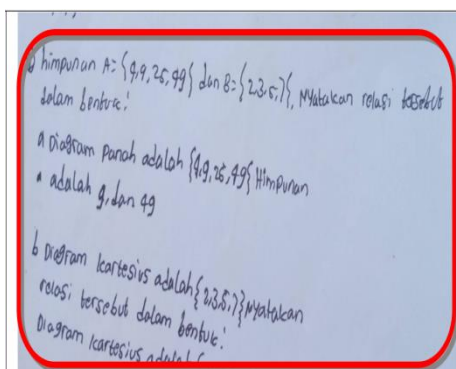 himpunan A = {4,9,25,49} dan B = {2,3,5,7}, Nyatakan relasi tersebut
dalam bentuk!
a Diagram panah adalah {4,9,25,49} Himpunan
a adalah 9, dan 49
b Diagram kartesius adalah {2,3,5,7} Nyatakan
relasi tersebut dalam bentuk!
Diagram kartesius adalah {